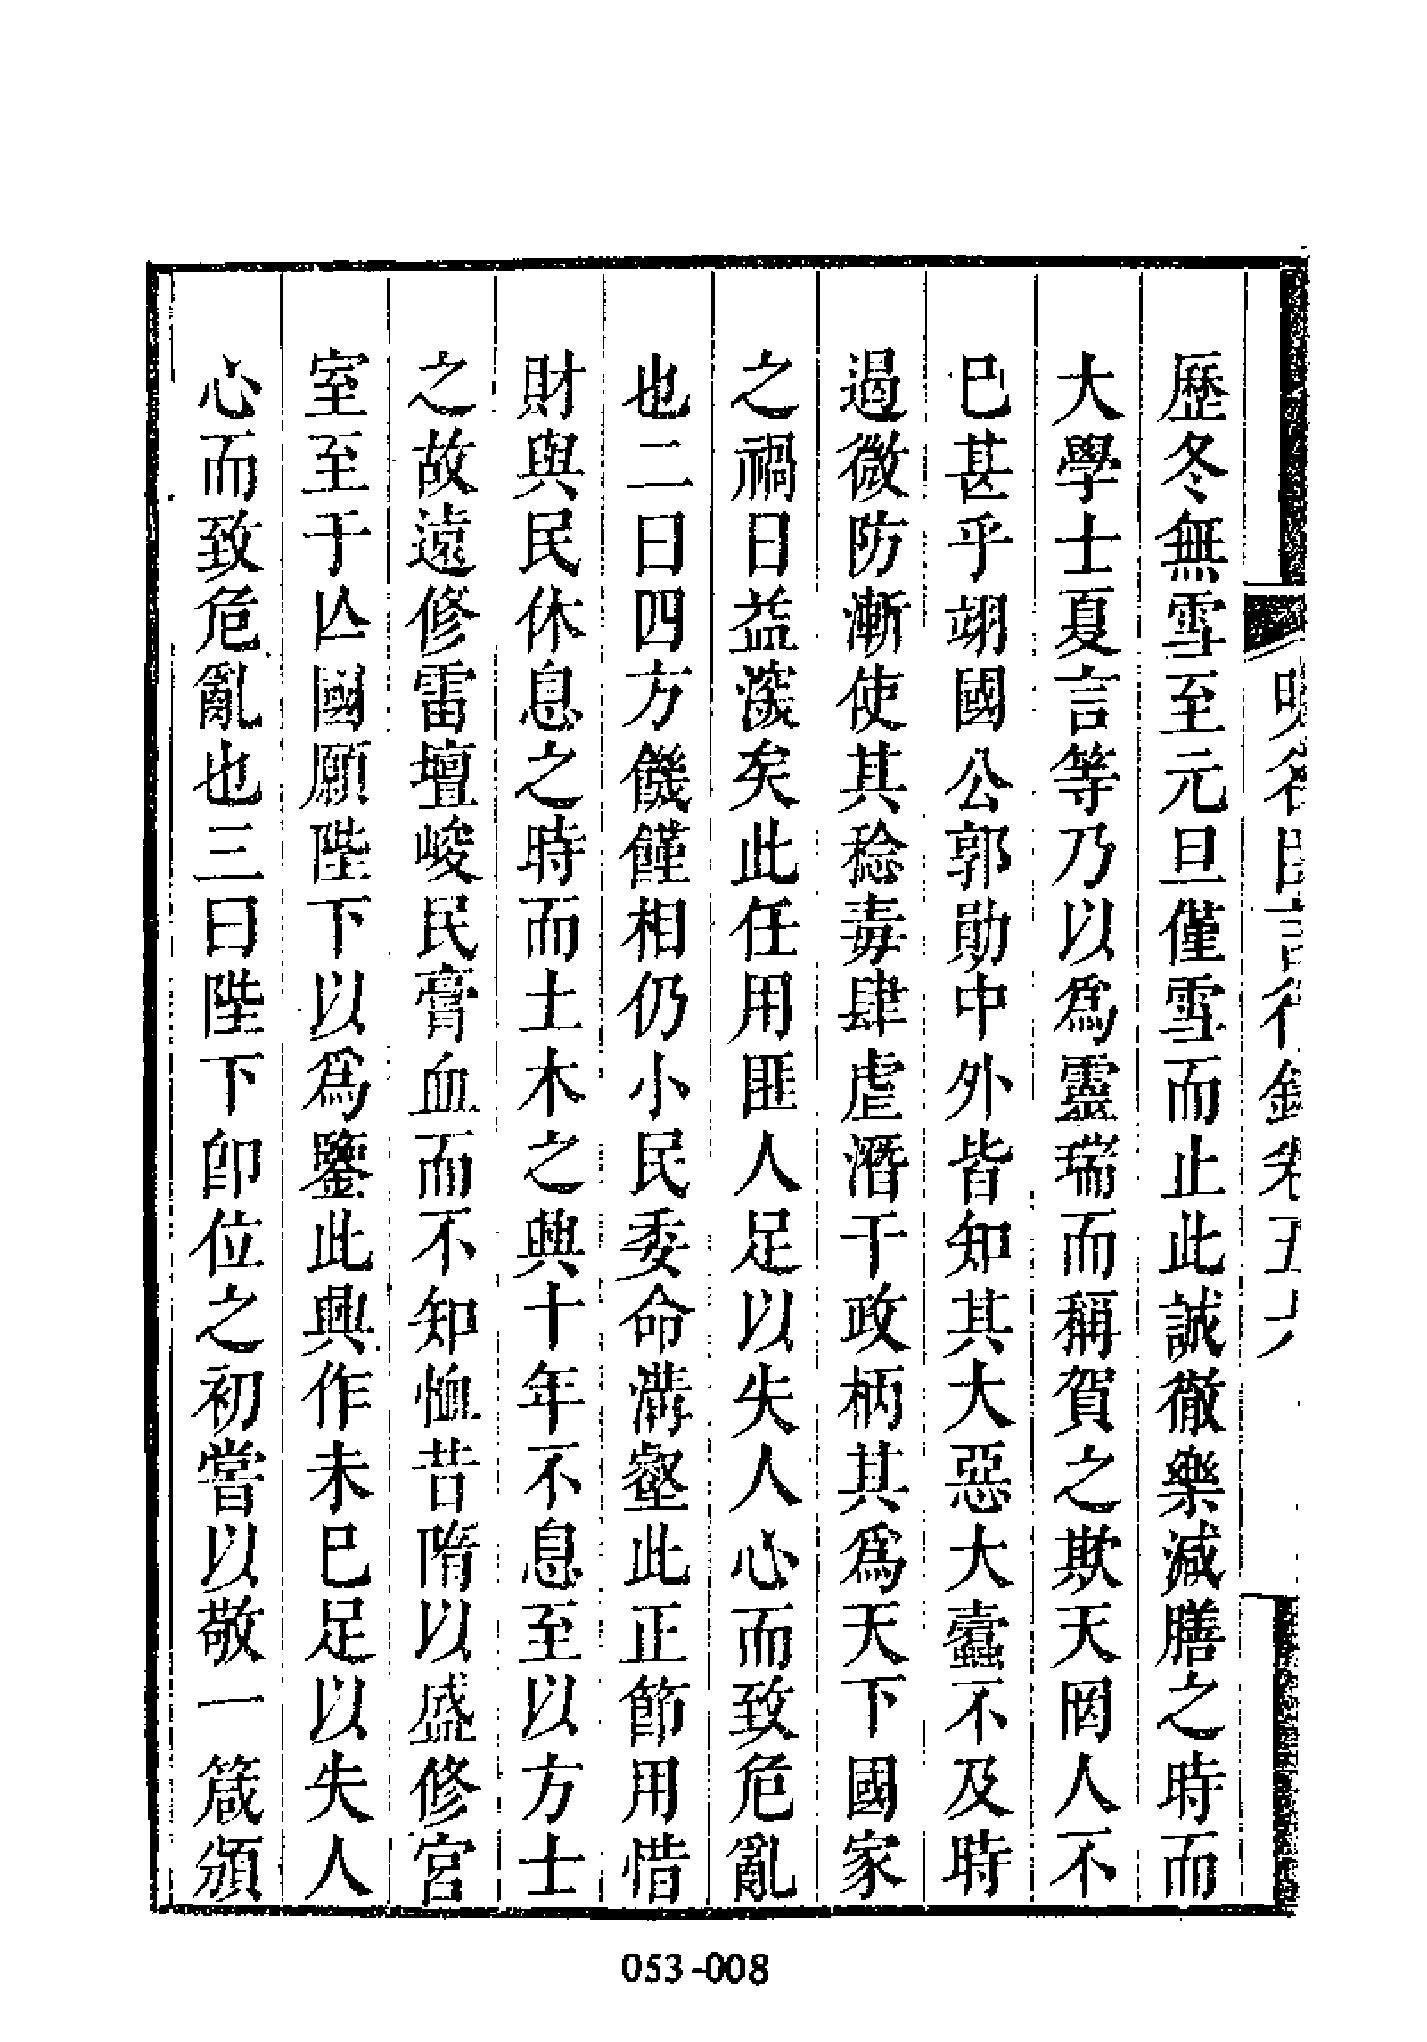 明名臣言行錄卷五十六
歷冬無雪至元旦僅雪而止此誠徹樂減膳之時而
大學士夏言等乃以爲靈瑞而稱賀之欺天罔人不
巳甚乎翊國公郭勛中外皆知其大惡大蠹不及時
遏微防漸使其稔毒肆虐潛干政柄其爲天下國家
之禍日益滋矣此任用匪人足以失人心而致危亂
也二曰四方饑饉相仍小民委命溝壑此正節用惜
財與民休息之時而土木之興十年不息至以方士
之故遠修雷壇峻民膏血而不知恤昔隋以盛修宮
室至于亾國願陛下以爲鑒此興作未巳足以失人
心而致危亂也三曰陛下卽位之初嘗以敬一箴頒
053-008